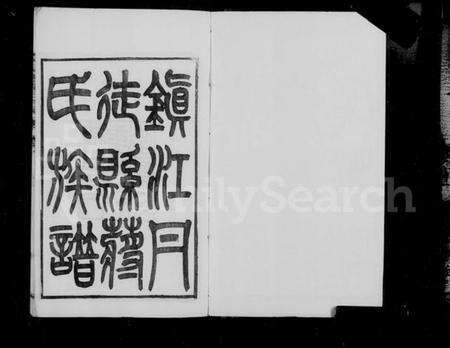 鎮江丹
徒縣蔣
氏族譜
FamilySearch